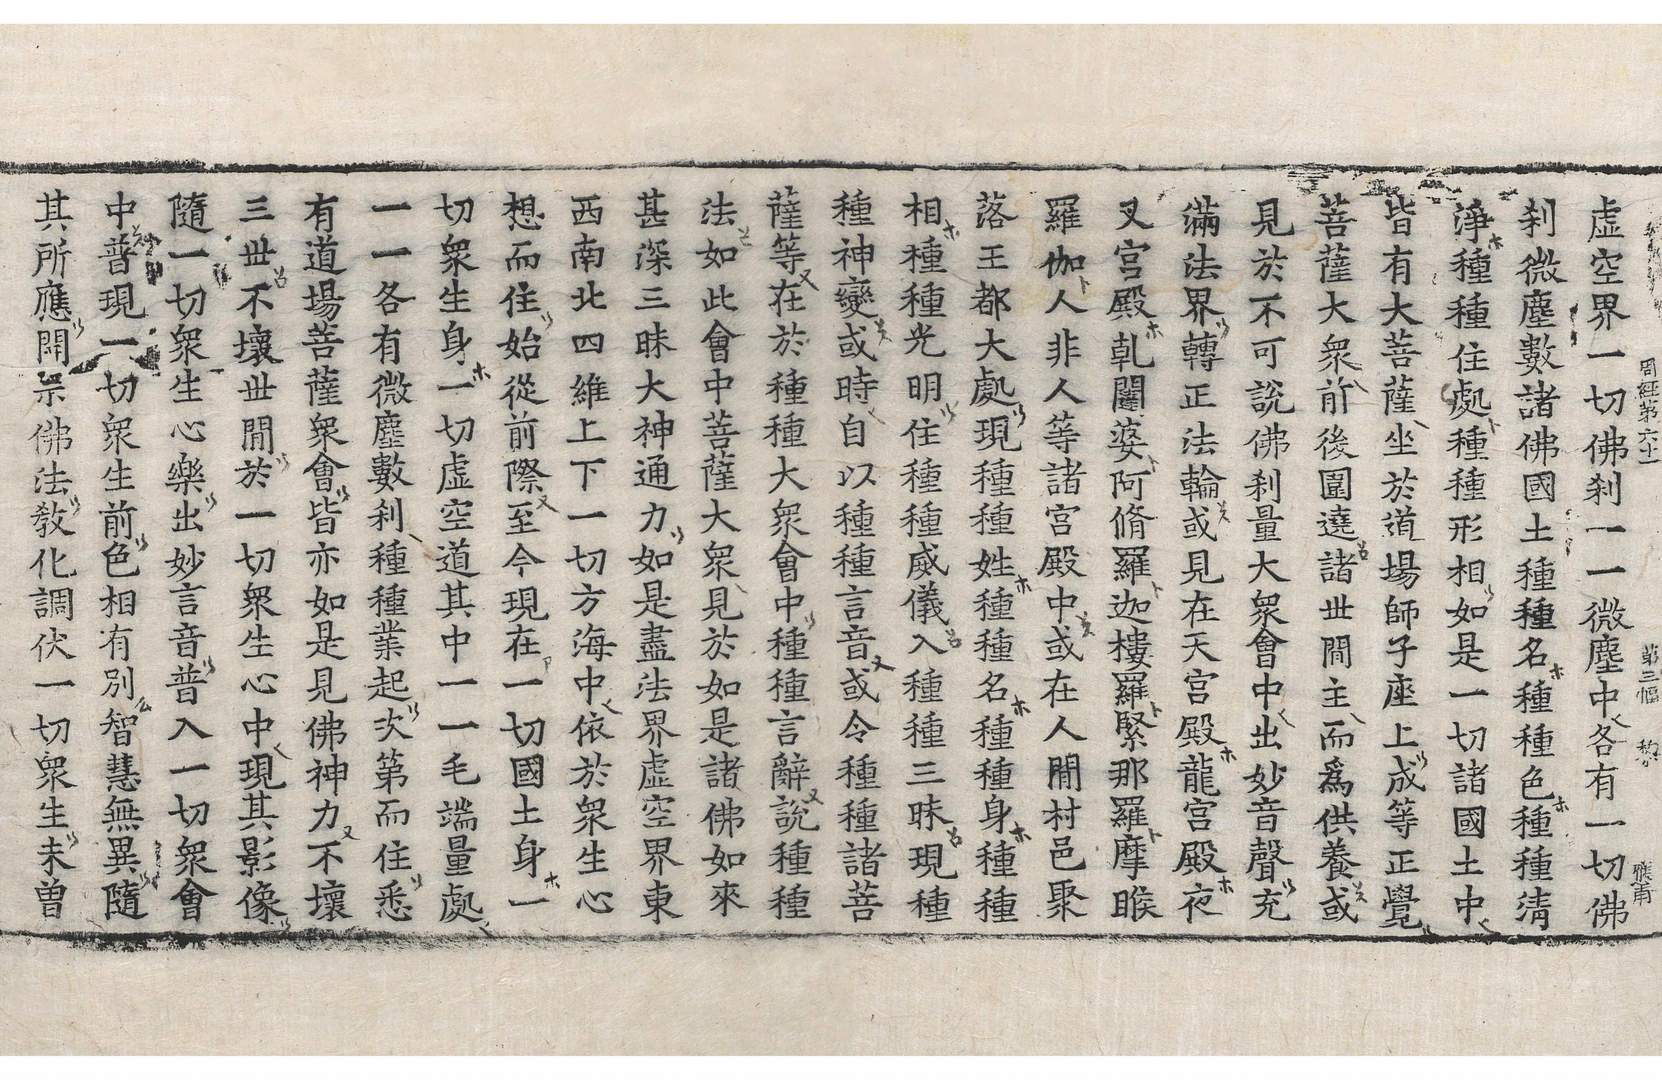 周經第六十一 第三幅
虛空界一切佛刹一一微塵中各有一切佛
刹微塵數諸佛國土種種名種種色種種清
淨種種住處種種形相如是一切諸國土中
皆有大菩薩坐於道場師子座上成等正覺
菩薩大衆前後圍遶諸世間主而爲供養或
見於不可說佛刹量大衆會中出妙音聲充
滿法界轉正法輪或見在天宮殿龍宮殿夜
叉宮殿乹闥婆阿脩羅迦樓羅緊那羅摩睺
羅伽人非人等諸宮殿中或在人間村邑聚
落王都大處現種種姓種種名種種身種種
相種種光明住種種威儀入種種三昧現種
種神變或時自以種種言音或令種種諸菩
薩等在於種種大衆會中種種言辭說種種
法如此會中菩薩大衆見於如是諸佛如來
甚深三昧大神通力如是盡法界虛空界東
西南北四維上下一切方海中依於衆生心
想而住始從前際至今現在一切國土身一
切衆生身一切虛空道其中一一毛端量處
一一各有微塵數刹種種業起次第而住悉
有道場菩薩衆會皆亦如是見佛神力不壞
三世不壞世間於一切衆生心中現其影像
隨一切衆生心樂出妙言音普入一切衆會
中普現一切衆生前色相有別智慧無異隨
其所應開示佛法教化調伏一切衆生未曾